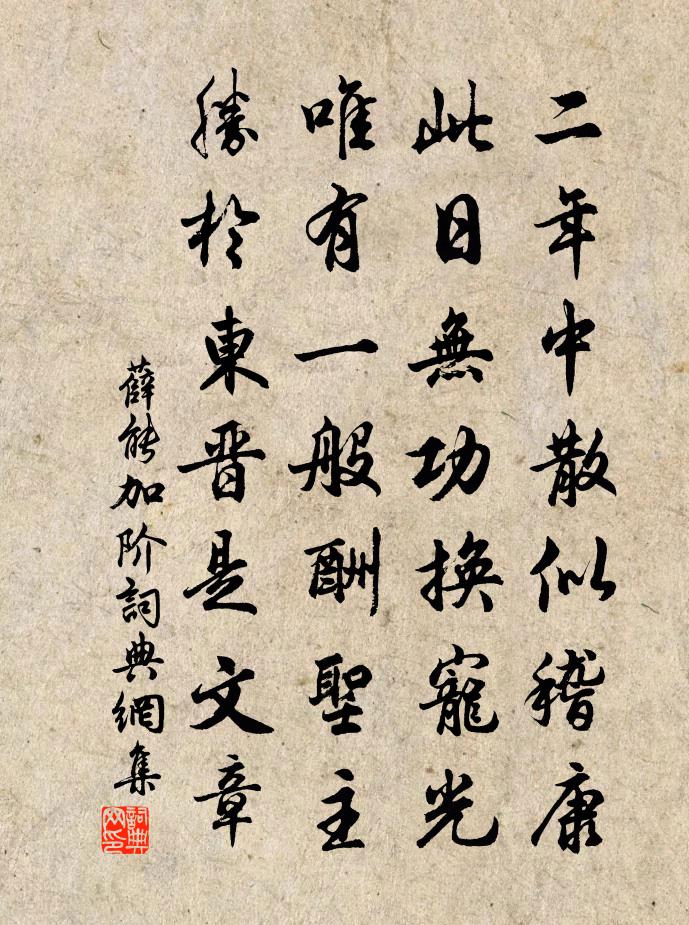 二年中散似稽康
此日無功換寵光
唯有一般酬聖主
勝於東晋是文章
薛能加阶詞典網集
詞典网印